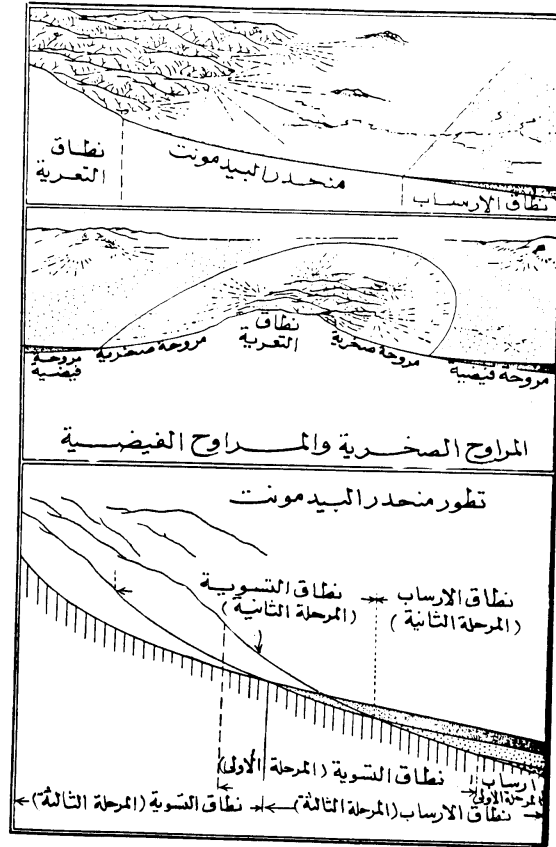 نطاق
التعرية
منحدر البيدمونت
نطاق الارساب
مروحة
فيضية
مروحة صخرية
نطاق
التعرية
مروحة صخرية
مروحة فيضية
المراوح الصخرية والمراوح الفيضية
تطور منحدر البيدمونت
نطاق التسوية
(المرحلة الثانية)
نطاق الارساب
(المرحلة الثانية)
نطاق التسوية (المرحلة الأولى)
ارساب
(المرحلة الأولى)
نطاق التسوية (المرحلة الثالثة)
نطاق الارساب (المرحلة الثالثة)